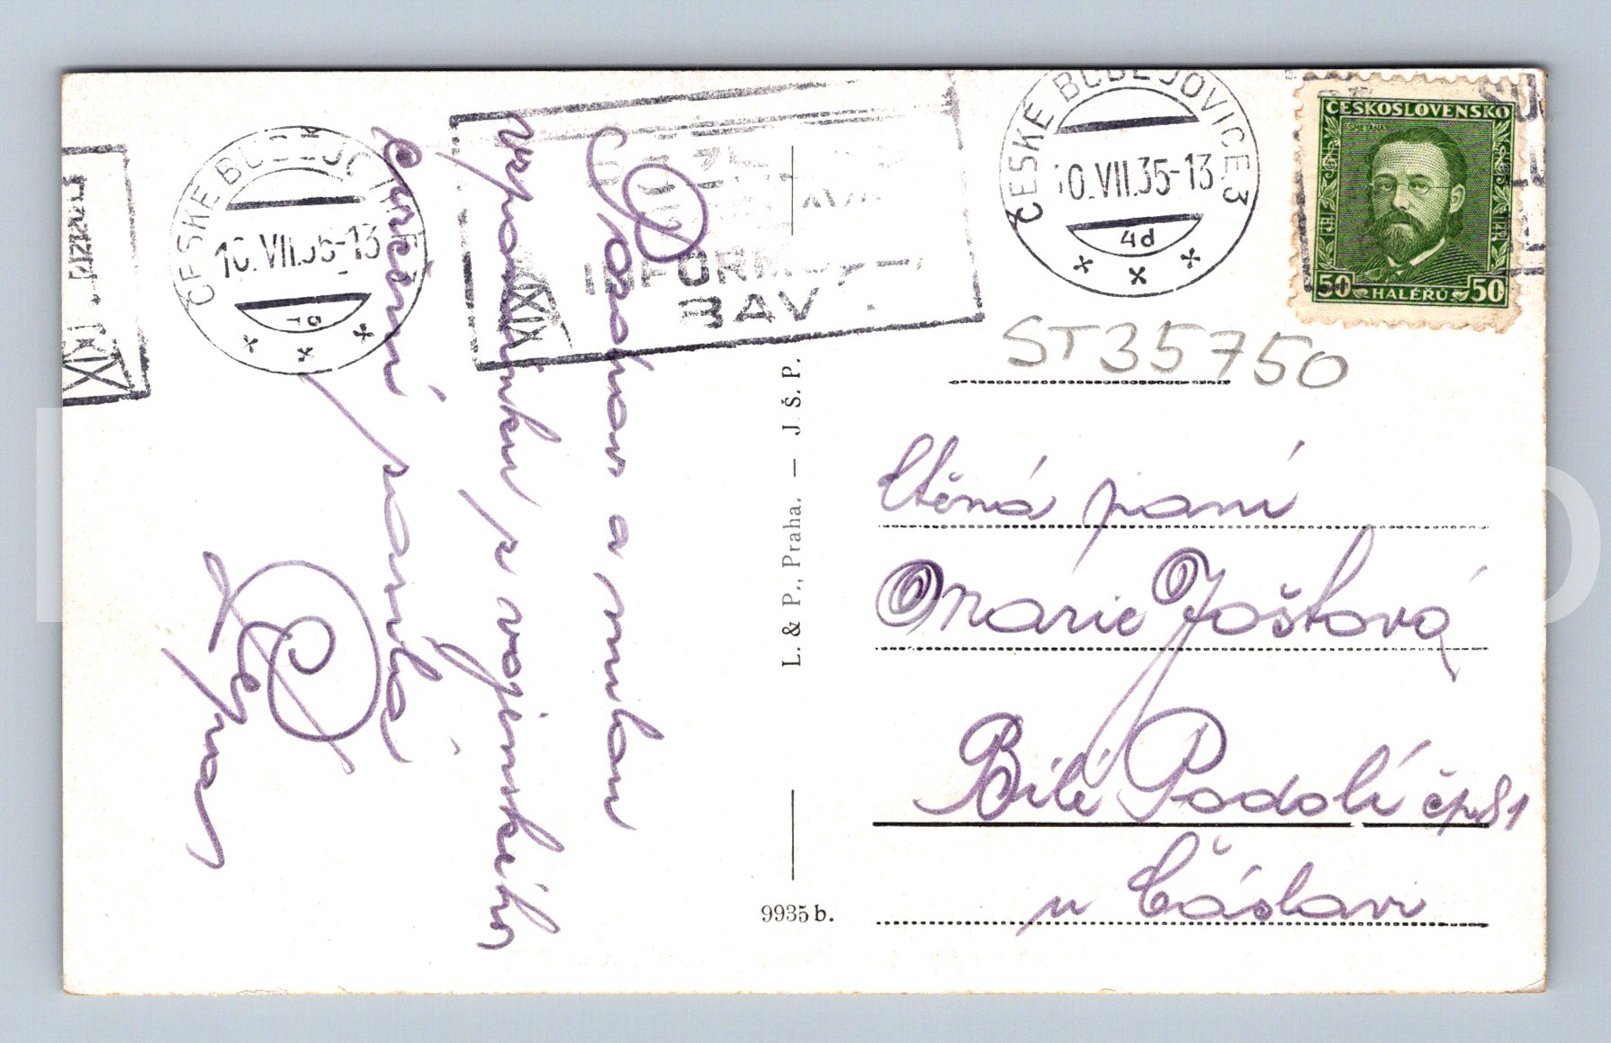 ČESKÉ BUDĚJOVICE 3
10.VII.35-13
4d
ČESKOSLOVENSKO
SMETANA
50 HALÉŘŮ 50
ČESKÉ BUDĚJOVICE
10.VII.35-13
INFORM
ST35750
Ctěná paní
Marie Joštová
Bílé Podolí čp 81
u Čáslavi
a milou
vzpomínku z vojenského
cvičení posílá
L. & P., Praha. — J. Š. P.
9935 b.